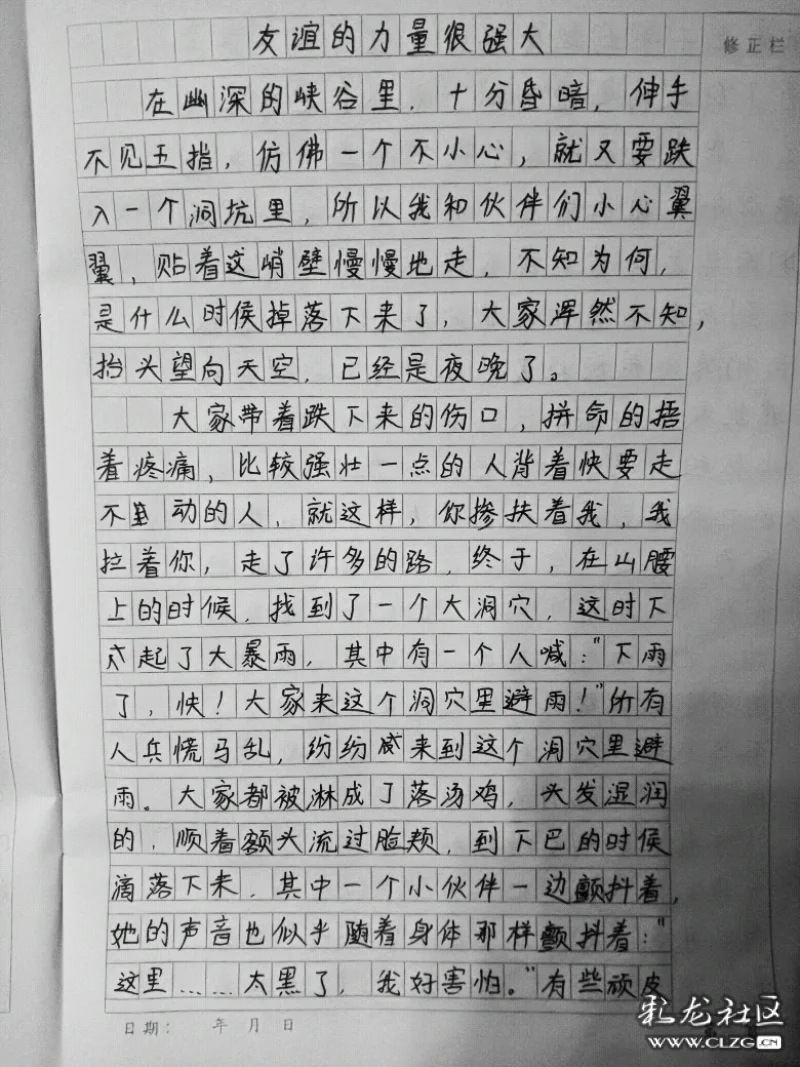 友谊的力量很强大
修正栏
在幽深的峡谷里，十分昏暗，伸手
不见五指，仿佛一个不小心，就又要跌
入一个洞坑里，所以我和伙伴们小心翼
翼，贴着这峭壁慢慢地走，不知为何，
是什么时候掉落下来了，大家浑然不知，
抬头望向天空，已经是夜晚了。
大家带着跌下来的伤口，拼命的捂
着疼痛，比较强壮一点的人背着快要走
不动的人，就这样，你掺扶着我，我
拉着你，走了许多的路，终于，在山腰
上的时候，找到了一个大洞穴，这时下
起了大暴雨，其中有一个人喊："下雨
了，快！大家来这个洞穴里避雨！"所有
人兵慌马乱，纷纷来到这个洞穴里避
雨。大家都被淋成了落汤鸡，头发湿润
的，顺着额头流过脸颊，到下巴的时候
滴落下来，其中一个小伙伴一边颤抖着，
她的声音也似乎随着身体那样颤抖着："
这里……太黑了，我好害怕。"有些顽皮
日期： 年 月 日
彩龙社区
WWW.CLZG.CN